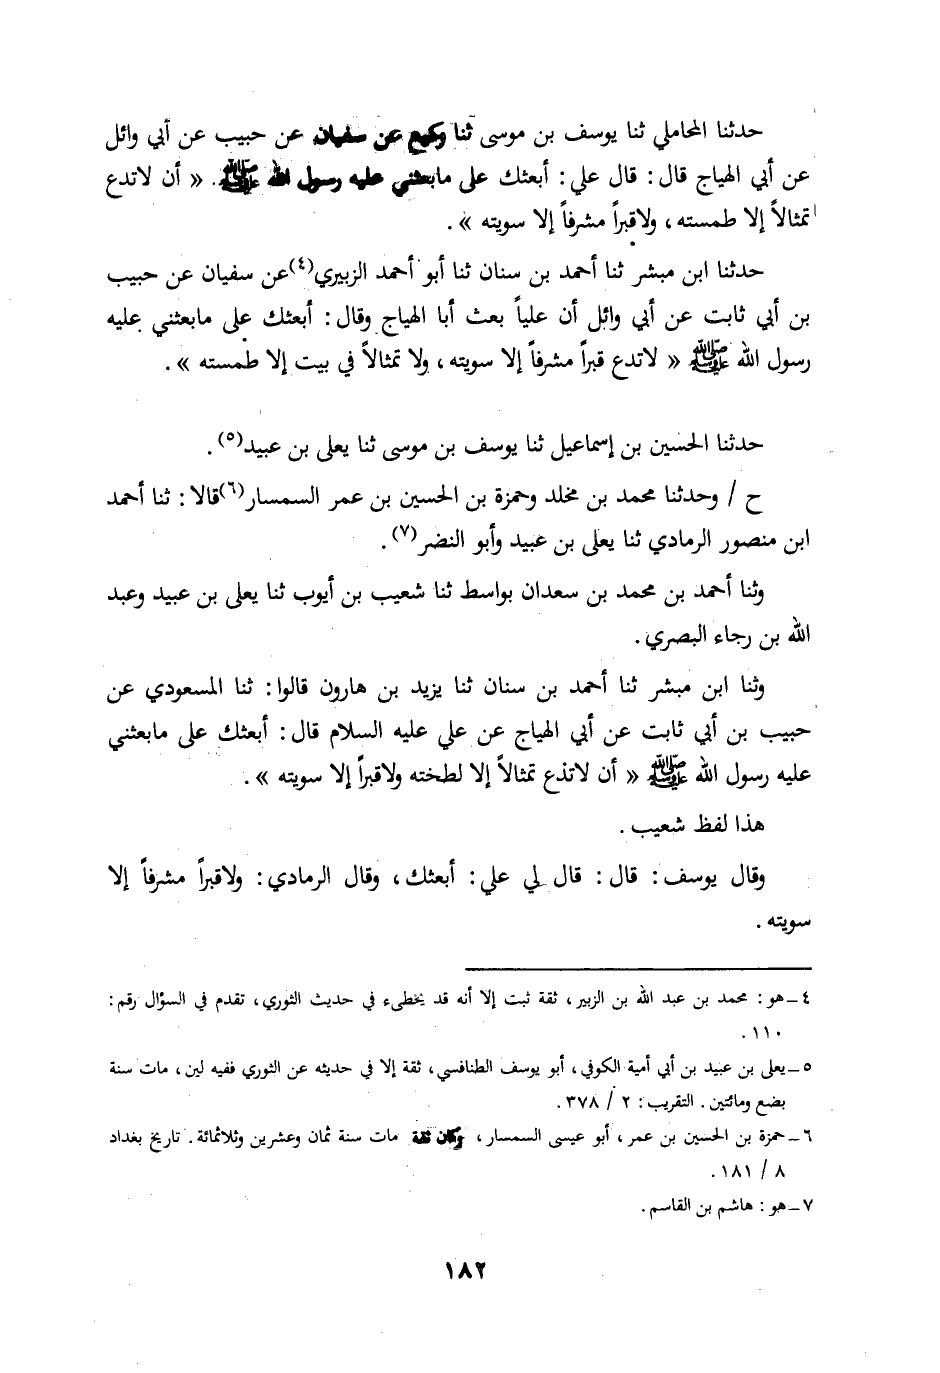 حدثنا المحاملي ثنا يوسف بن موسى ثنا وكيع عن سفيان عن حبيب عن أبي وائل
عن أبي الهياج قال: قال علي: أبعثك على مابعثني عليه رسول الله ﷺ. « أن لاتدع
تمثالاً إلا طمسته، ولاقبراً مشرفاً إلا سويته ».
حدثنا ابن مبشر ثنا أحمد بن سنان ثنا أبو أحمد الزبيري(٤)عن سفيان عن حبيب
بن أبي ثابت عن أبي وائل أن علياً بعث أبا الهياج وقال: أبعثك على مابعثني عليه
رسول الله ﷺ « لاتدع قبراً مشرفاً إلا سويته، ولا تمثالاً في بيت إلا طمسته ».
حدثنا الحسين بن إسماعيل ثنا يوسف بن موسى ثنا يعلى بن عبيد(٥).
ح / وحدثنا محمد بن مخلد وحمزة بن الحسين بن عمر السمسار(٦)قالا: ثنا أحمد
ابن منصور الرمادي ثنا يعلى بن عبيد وأبو النضر(٧).
وثنا أحمد بن محمد بن سعدان بواسط ثنا شعيب بن أيوب ثنا يعلى بن عبيد وعبد
الله بن رجاء البصري.
وثنا ابن مبشر ثنا أحمد بن سنان ثنا يزيد بن هارون قالوا: ثنا المسعودي عن
حبيب بن أبي ثابت عن أبي الهياج عن علي عليه السلام قال: أبعثك على مابعثني
عليه رسول الله ﷺ « أن لاتذع تمثالاً إلا لطخته ولاقبراً إلا سويته ».
هذا لفظ شعيب.
وقال يوسف: قال: قال لي علي: أبعثك، وقال الرمادي: ولاقبراً مشرفاً إلا
سويته.
٤ـ هو: محمد بن عبد الله بن الزبير، ثقة ثبت إلا أنه قد يخطىء في حديث الثوري، تقدم في السؤال رقم:
١١٠.
٥ـ يعلى بن عبيد بن أبي أمية الكوفي، أبو يوسف الطنافسي، ثقة إلا في حديثه عن الثوري ففيه لين، مات سنة
بضع ومائتين. التقريب: ٢ / ٣٧٨.
٦ـ حمزة بن الحسين بن عمر، أبو عيسى السمسار، وكان ثقة مات سنة ثمان وعشرين وثلاثمائة. تاريخ بغداد
٨ / ١٨١.
٧ـ هو: هاشم بن القاسم.
١٨٢